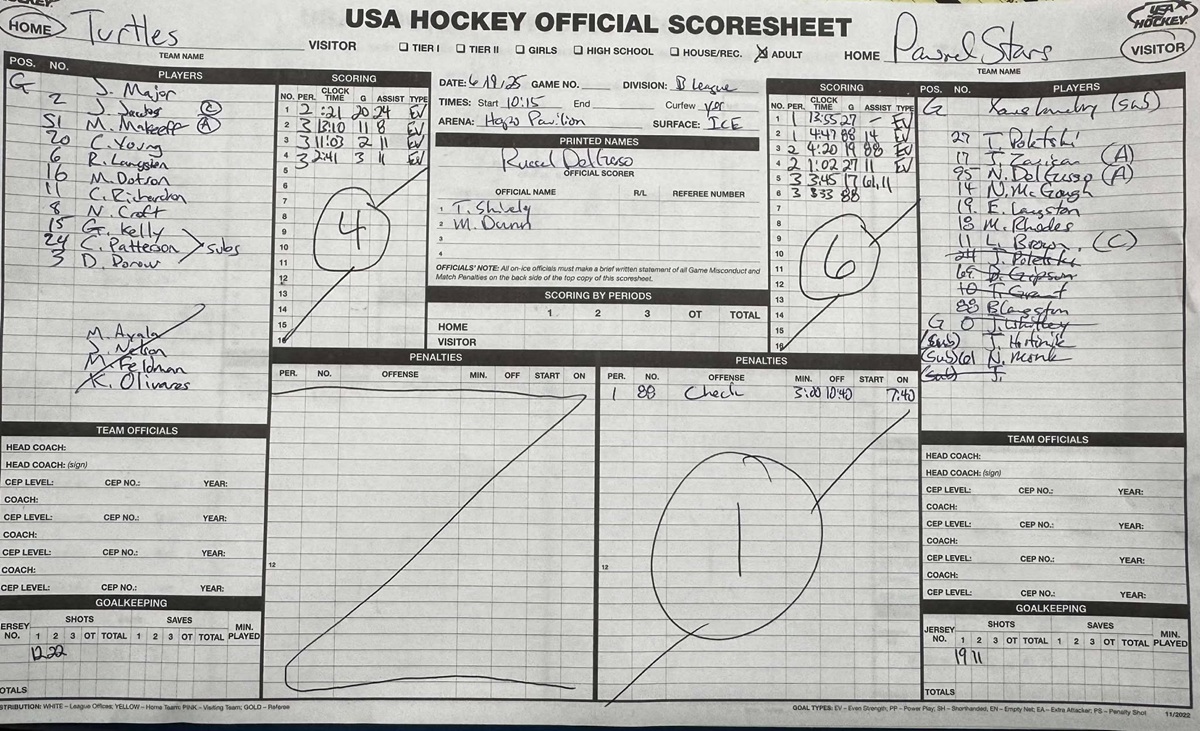 HOCKEY
USA HOCKEY OFFICIAL SCORESHEET
USA HOCKEY
HOME Turtles VISITOR
TEAM NAME
☐ TIER I ☐ TIER II ☐ GIRLS ☐ HIGH SCHOOL ☐ HOUSE/REC. ☒ ADULT
HOME Pawnd Stars VISITOR
TEAM NAME
POS. NO. PLAYERS
G J. Major
2 J. (C)
51 M. Makeeff (A)
20 C. Young
6 R. Langston
16 M. Dotson
11 C. Richardson
8 N. Croft
15 G. Kelly
24 C. Patterson > subs
3 D. Dorow
M. Ayala
J. Nelson
M. Feldman
K. Olivares
SCORING
NO. PER. CLOCK TIME G ASSIST TYPE
1 2 :21 20 24 EV
2 3 13:10 11 8 EV
3 3 11:03 2 11 EV
4 3 2:41 3 11 EV
5
6
7
8
9
10
11
12
13
14
15
16
4
DATE: 6/19/25 GAME NO. DIVISION: B League
TIMES: Start 10:15 End Curfew yes
ARENA: Pavilion SURFACE: ICE
PRINTED NAMES
Russel DelGrosso
OFFICIAL SCORER
OFFICIAL NAME R/L REFEREE NUMBER
1 T. Shively
2 M. Dunn
3
4
OFFICIALS' NOTE: All on-ice officials must make a brief written statement of all Game Misconduct and
Match Penalties on the back side of the top copy of this scoresheet.
SCORING BY PERIODS
1 2 3 OT TOTAL
HOME
VISITOR
SCORING
NO. PER. CLOCK TIME G ASSIST TYPE
1 1 13:55 27 – EV
2 1 4:47 88 14 EV
3 2 4:20 19 88 EV
4 2 1:02 27 11 EV
5 3 3:45 17 61,11
6 3 :33 88
7
8
9
10
11
12
13
14
15
16
6
POS. NO. PLAYERS
G (sub)
27 T. Poletski
17 J. Zagican (A)
95 N. DelGusso (A)
14 N. McGough
19 E. Langston
18 M. Rhodes
11 L. Brown. (C)
24 J. Poletski
69 B. Gipson
10 T. Grant
88 B Langston
G 0 J. Whitley
(Sub) J.
(Sub) 61 N. Monk
(Sub) J.
PENALTIES
PER. NO. OFFENSE MIN. OFF START ON
12
PENALTIES
PER. NO. OFFENSE MIN. OFF START ON
1 88 Check 3:00 10:40 7:40
1
12
TEAM OFFICIALS
HEAD COACH:
HEAD COACH: (sign)
CEP LEVEL: CEP NO.: YEAR:
COACH:
CEP LEVEL: CEP NO.: YEAR:
COACH:
CEP LEVEL: CEP NO.: YEAR:
COACH:
CEP LEVEL: CEP NO.: YEAR:
GOALKEEPING
JERSEY NO. SHOTS SAVES MIN. PLAYED
1 2 3 OT TOTAL 1 2 3 OT TOTAL
12 22
TOTALS
TEAM OFFICIALS
HEAD COACH:
HEAD COACH: (sign)
CEP LEVEL: CEP NO.: YEAR:
COACH:
CEP LEVEL: CEP NO.: YEAR:
COACH:
CEP LEVEL: CEP NO.: YEAR:
COACH:
CEP LEVEL: CEP NO.: YEAR:
GOALKEEPING
JERSEY NO. SHOTS SAVES MIN. PLAYED
1 2 3 OT TOTAL 1 2 3 OT TOTAL
19 11
TOTALS
DISTRIBUTION: WHITE – League Offices; YELLOW – Home Team; PINK – Visiting Team; GOLD – Referee
GOAL TYPES: EV – Even Strength, PP – Power Play; SH – Shorthanded, EN – Empty Net; EA – Extra Attacker; PS – Penalty Shot 11/2022